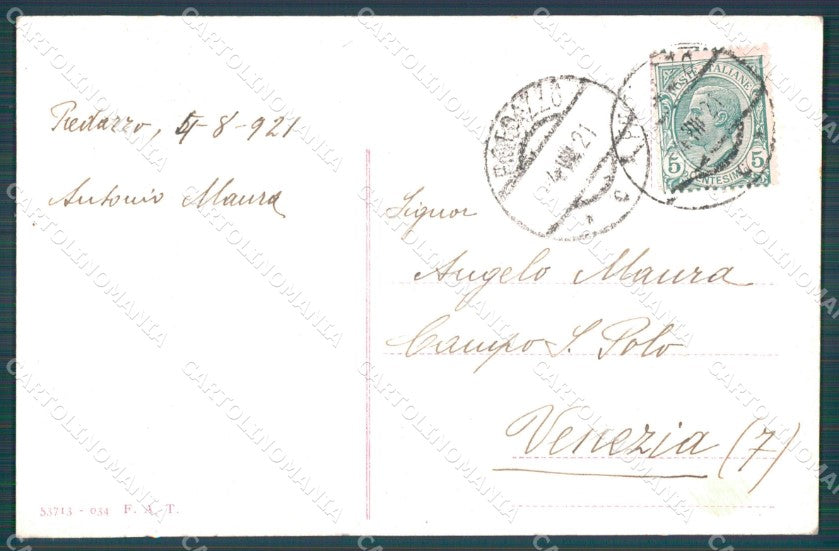 Predazzo, 4-8-921
Antonio Maura
PREDAZZO
4.VIII.21
POSTE ITALIANE
5 5
CENTESIMI
Signor
Angelo Maura
Campo S. Polo
Venezia (7)
53713 - 034 F. A. T.
CARTOLINOMANIA